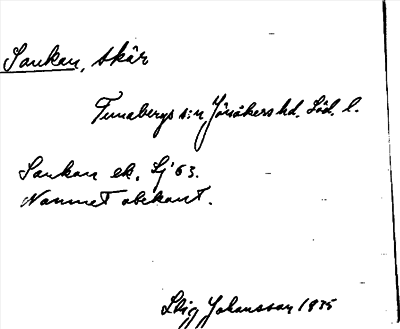 Sankan, skär
Tunabergs s:n, Jönåkers hd. Söd. l.
Sankan ek. Lj 63.
Namnet obekant.
Stig Johansson 1935